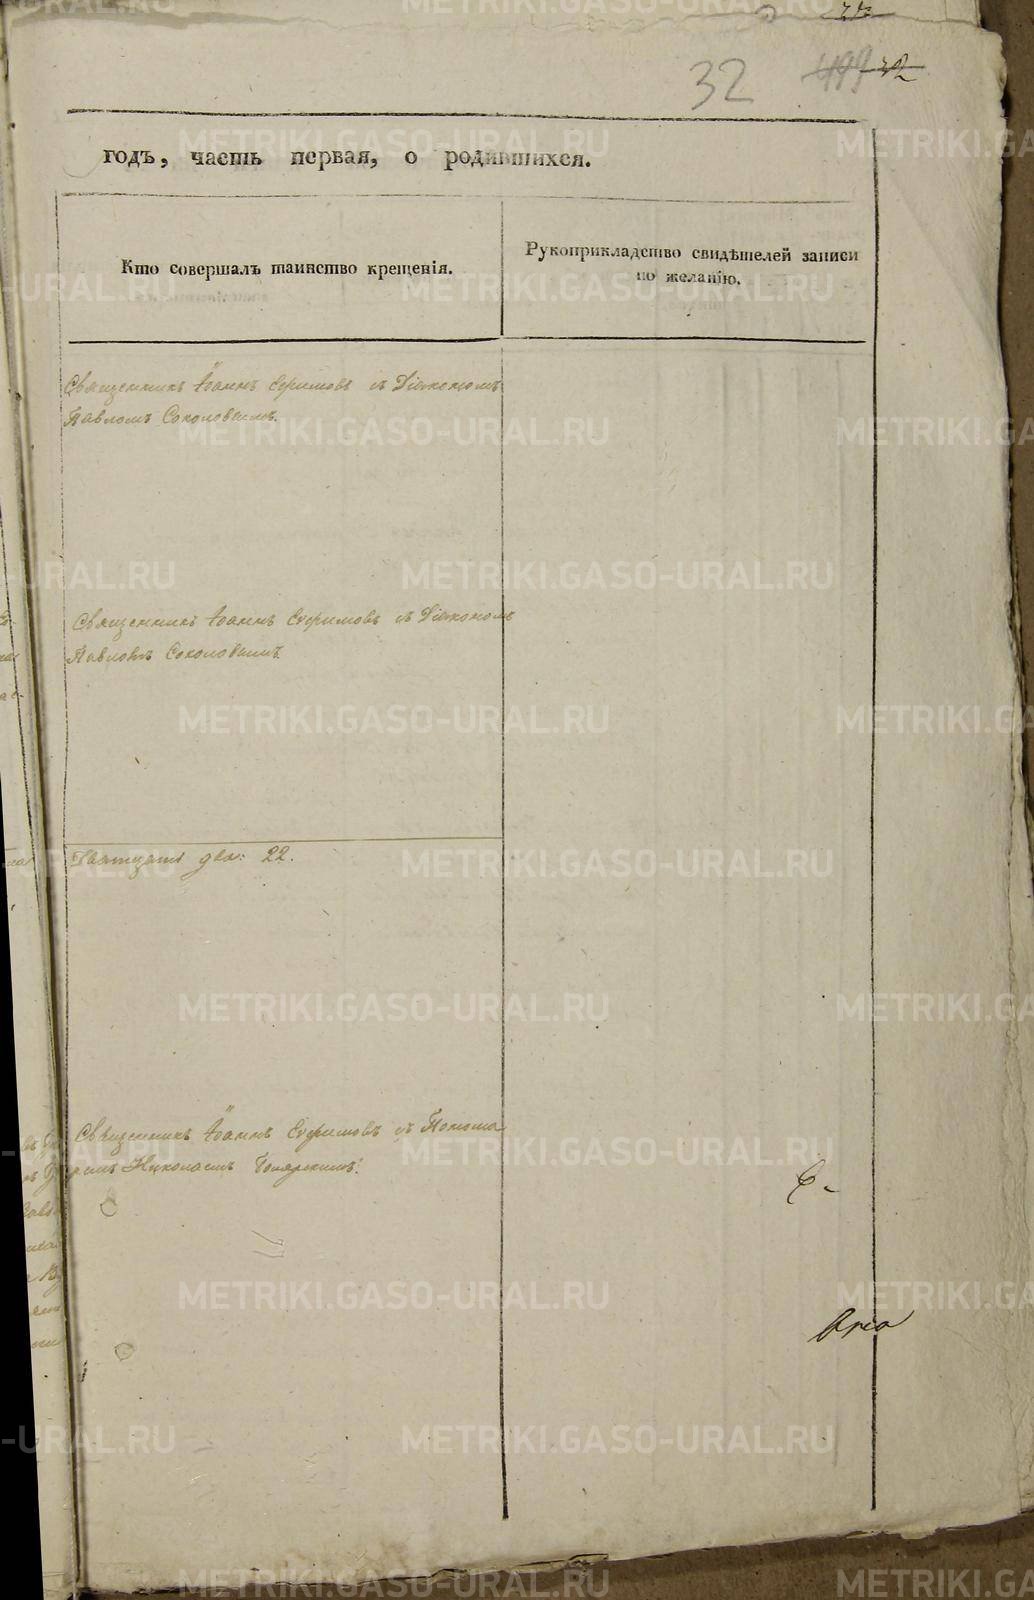 32 499 32
годъ, часть первая, о родившихся.
Кто совершалъ таинство крещенія.
Рукоприкладство свидѣтелей записи
по желанію.
Священникъ Іоаннъ Ефимовъ съ Діакономъ
Павломъ Соколовымъ.
Священникъ Іоаннъ Ефимовъ съ Діакономъ
Павломъ Соколовымъ
Дватцать два: 22.
Священникъ Іоаннъ Ефимовъ съ Понома
ремъ Николаемъ
METRIKI.GASO-URAL.RU